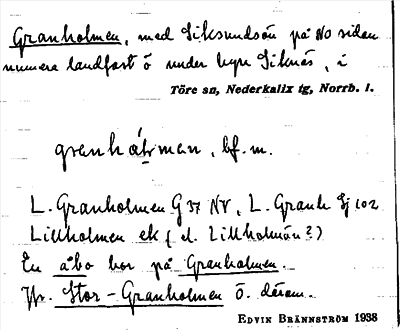 Granholmen, med Siksundsön på NO sidan
numera landfast ö under byn Siknäs, i
Töre sn, Nederkalix tg, Norrb. l.
granhåḷman, bf. m.
L. Granholmen G 37 NV, L. Granh Ej 102
Lillholmen ek (el. Lillholmön?)
En åbo bor på Granholmen.
Jfr. Stor-Granholmen ö. därom.
EDVIN BRÄNNSTRÖM 1938